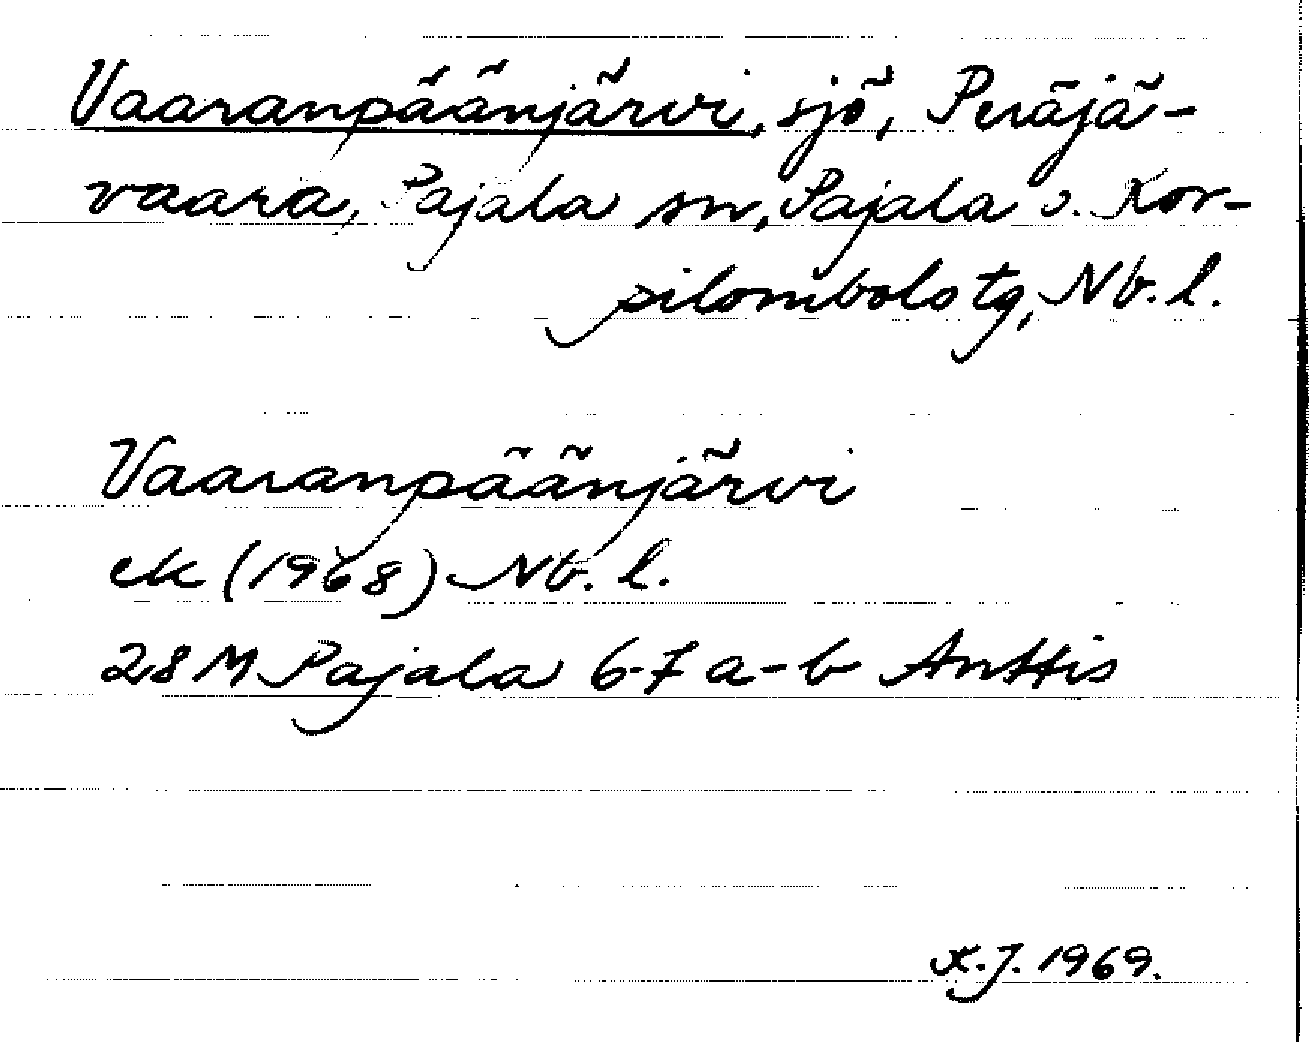 Vaaranpäänjärvi, sjö, Peräjä-
vaara, Pajala sn, Pajala o. Kor-
pilombolo tg, Nb. l.
Vaaranpäänjärvi
ek (1968) Nb. l.
28 M Pajala 6-7 a-b Anttis
K.J. 1969.